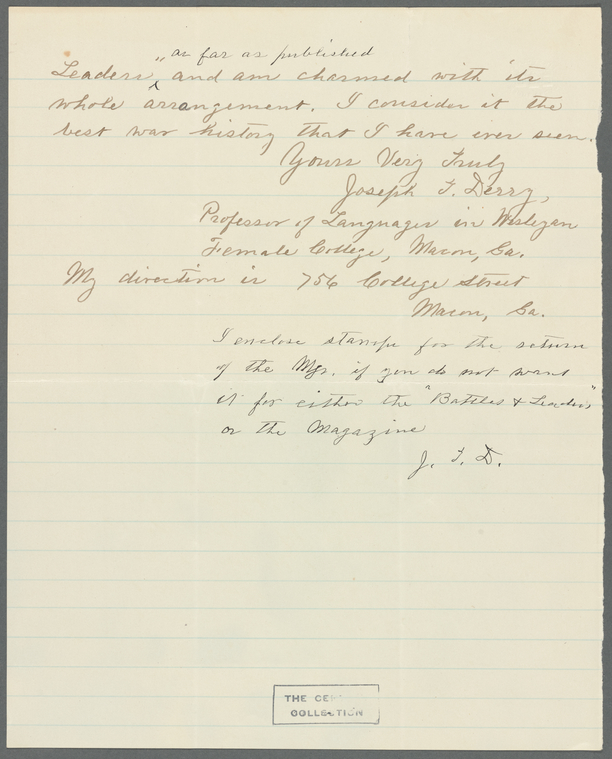 as far as published
Leaders", and am charmed with its
whole arrangement. I consider it the
best war history that I have ever seen.
Yours Very Truly
Joseph T. Derry,
Professor of Languages in Wesleyan
Female College, Macon, Ga.
My direction is 756 College Street
Macon, Ga.
I enclose stamps for the return
of the Mgs. if you do not want
it for either the "Battles & Leaders"
or the Magazine
J. T. D.
THE CE
COLLECTION